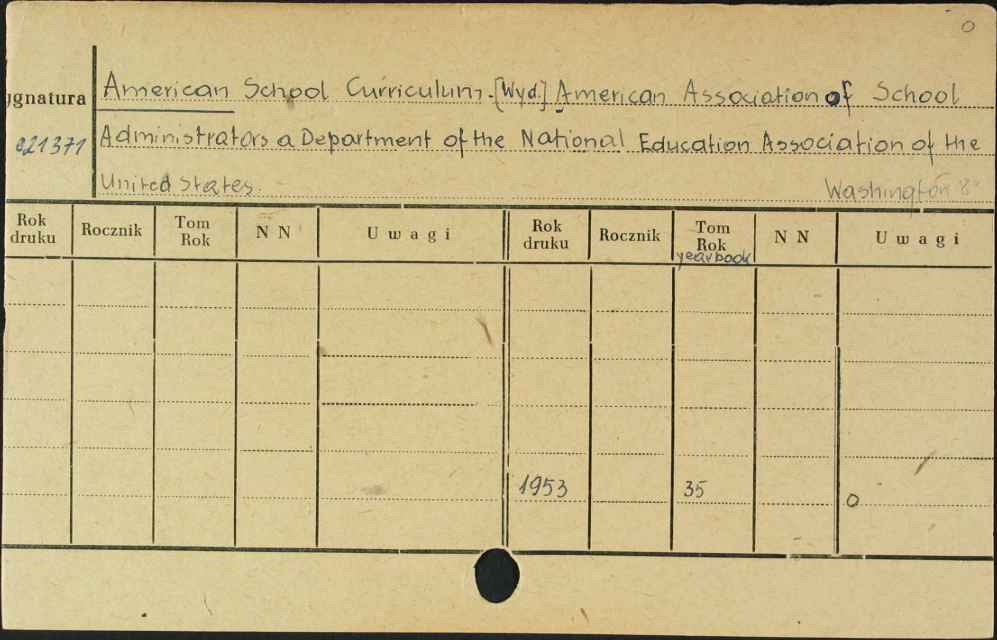 0
ygnatura
American School Curriculum. [Wyd.] American Association of School
021371
Administrators a Department of the National Education Association of the
United States.
Washington 8°
Rok druku Rocznik Tom Rok N N Uwagi Rok druku Rocznik Tom Rok N N Uwagi
yearbook
1953 35 0